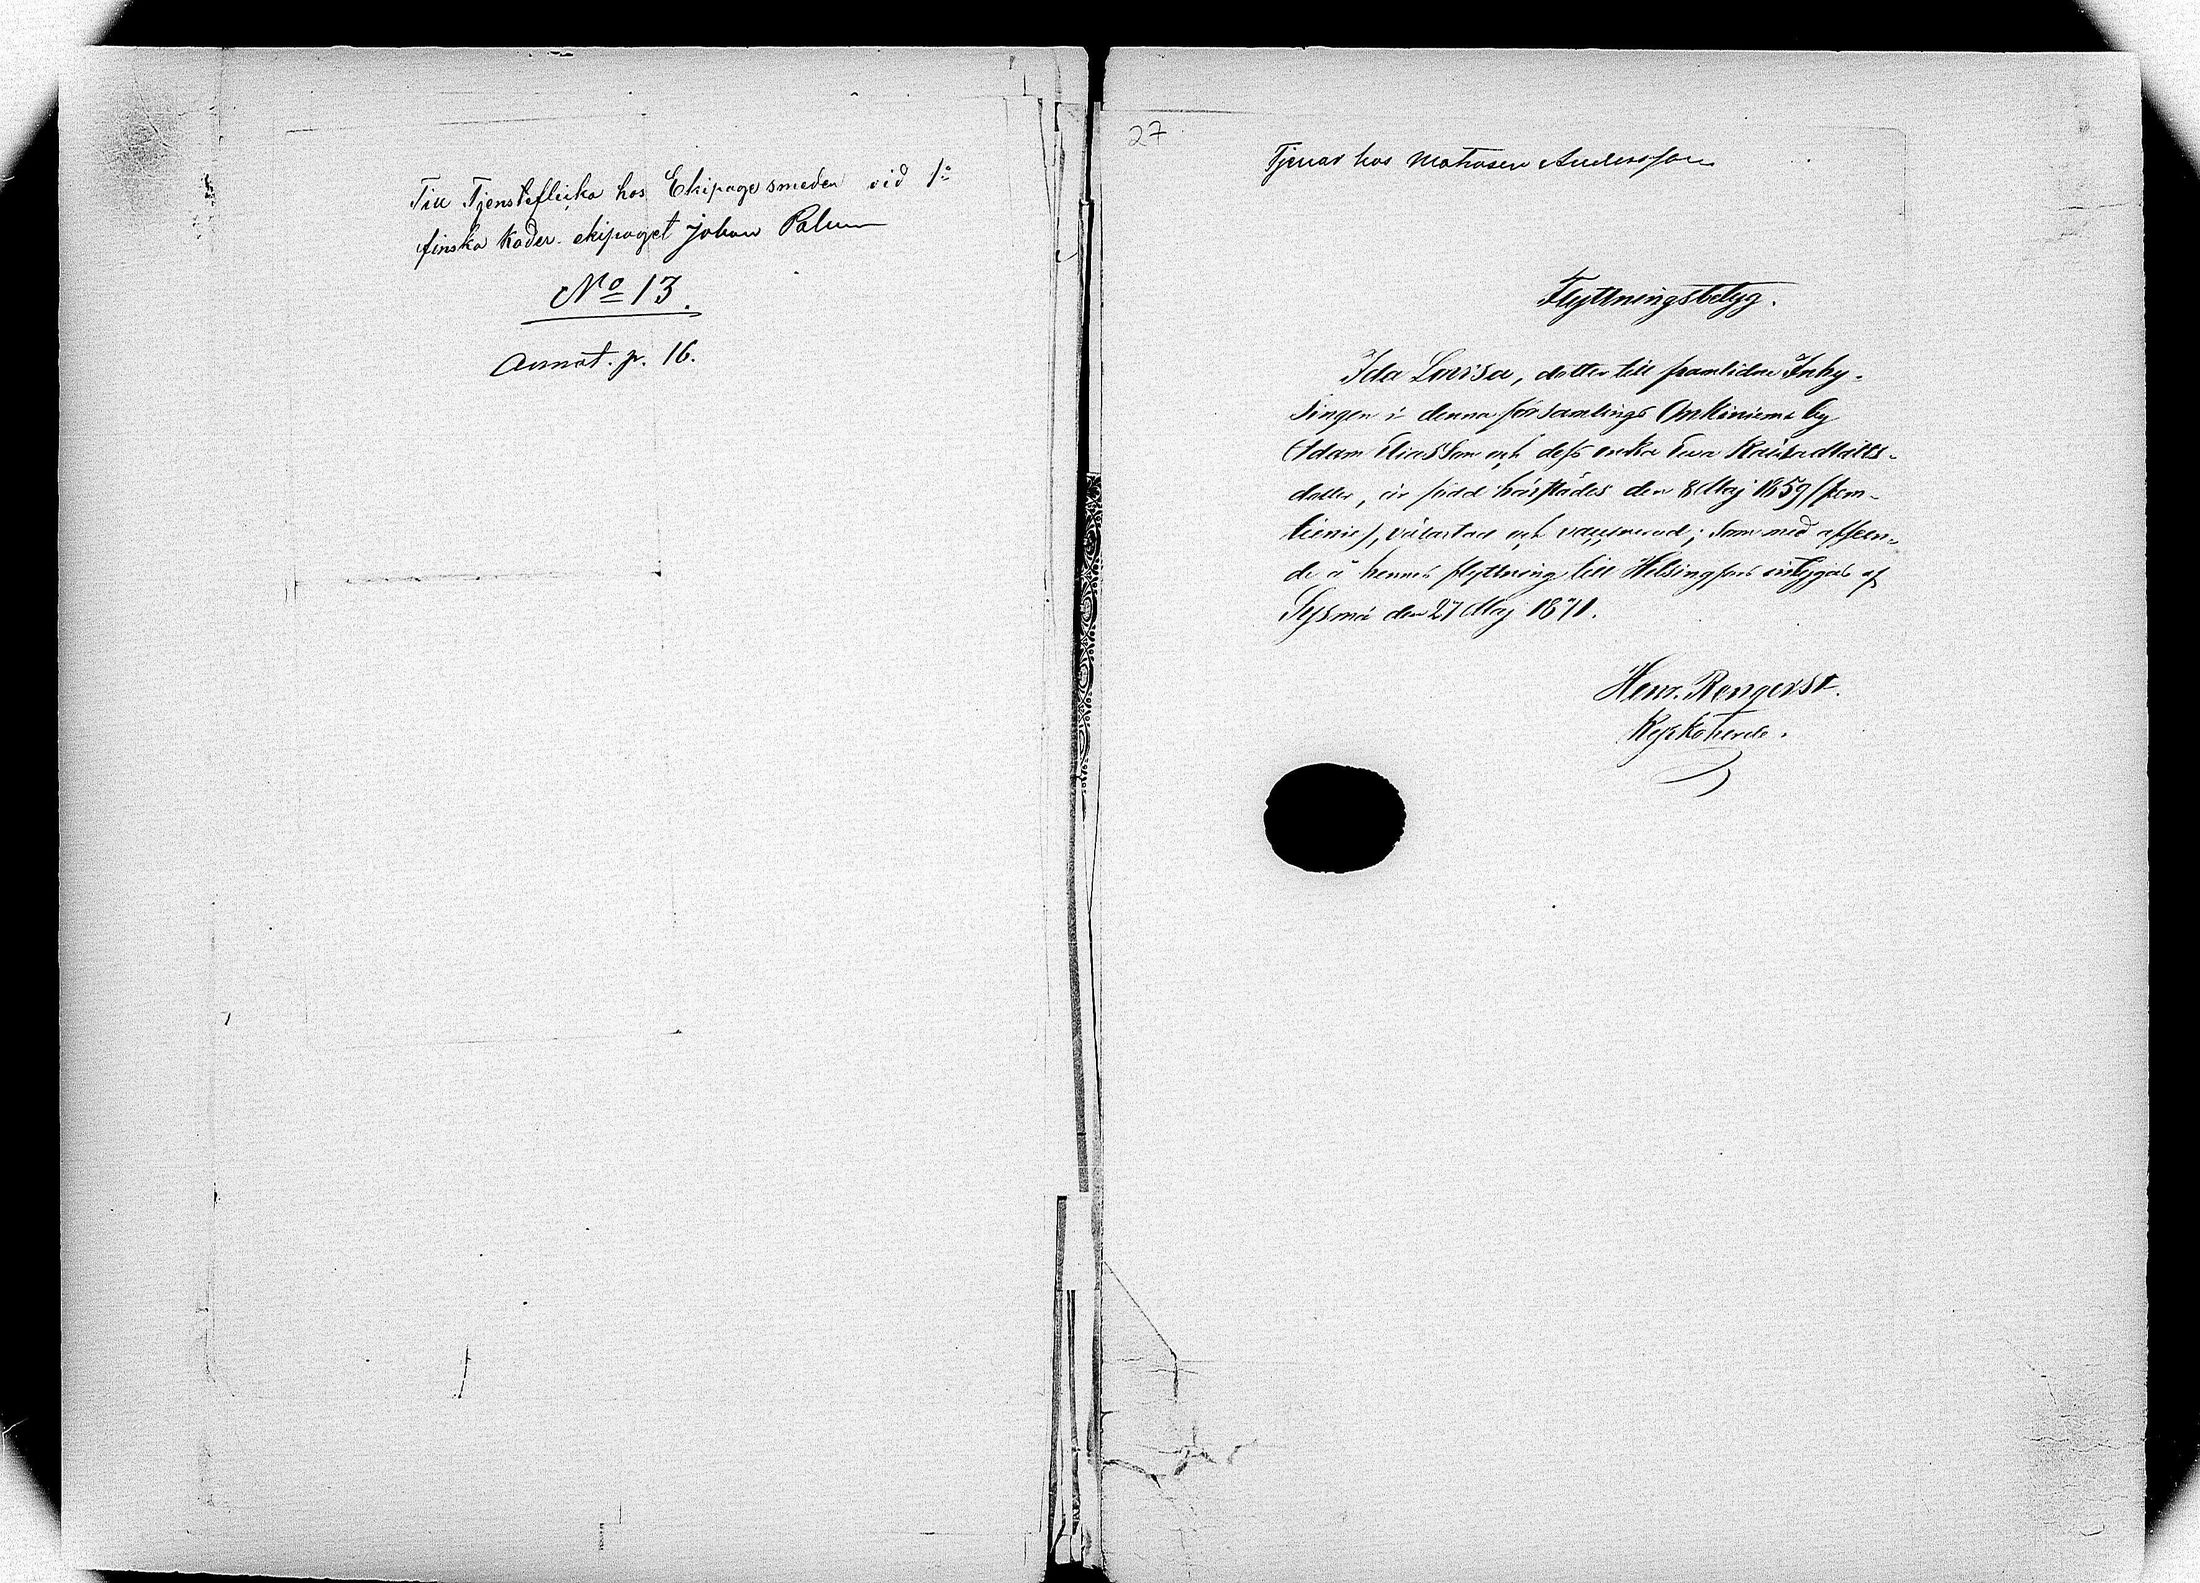 Till Tjensteflicka hos Ekipagesmeden vid 1:a
finska kader-ekipaget Johan Palm
No 13.
Annot. p. 16.
27
Tjenar hos Matrosen Andersson
Flyttningsbetyg.
Ida Lovisa, dotter till framlidne Inhy-
singen i denna församlings Onkiniemi by
Adam Eliasson och dess enka Eva
dotter, är född härstädes den 8 Maj 1859 (fem-
tionie), välartad och vaccinerad; som med afseen-
de å hennes flyttning till Helsingfors intygas af
Sysmä den 27 Maj 1871.
Henr.